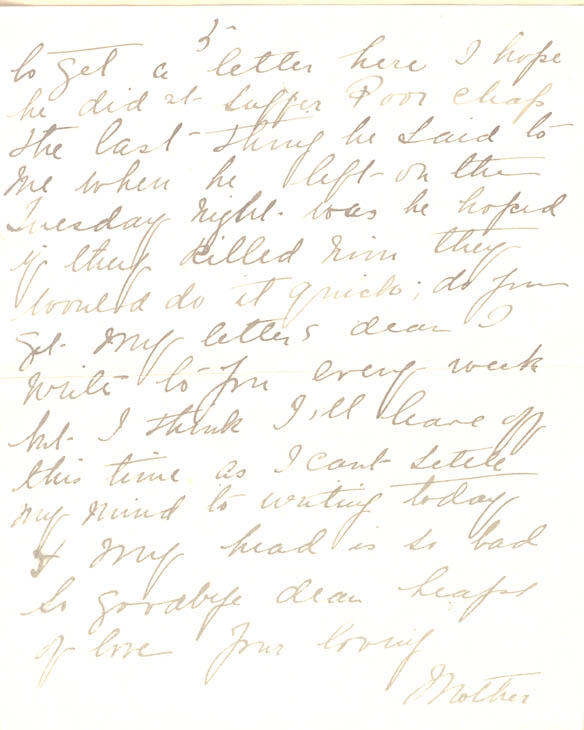 5
to get a letter here I hope
he didnt suffer Poor chap
the last thing he said to
me when he left on the
Tuesday night was he hoped
if they killed him they
would do it quick; do you
get my letters dear I
write to you every week
but I think I'll leave off
this time as I cant settle
my mind to writing today
& my head is so bad
so goodbye dear heaps
of love your loving
Mother